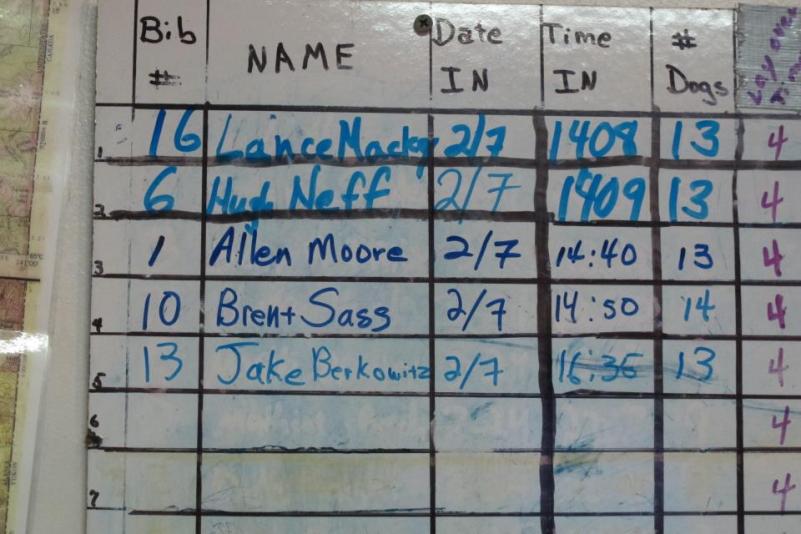 Bib # NAME Date IN Time IN # Dogs Lay over
1 16 Lance Macky 2/7 1408 13 4
2 6 Hugh Neff 2/7 1409 13 4
3 1 Allen Moore 2/7 14:40 13 4
4 10 Brent Sass 2/7 14:50 14 4
5 13 Jake Berkowitz 2/7 16:36 13 4
6 4
7 4